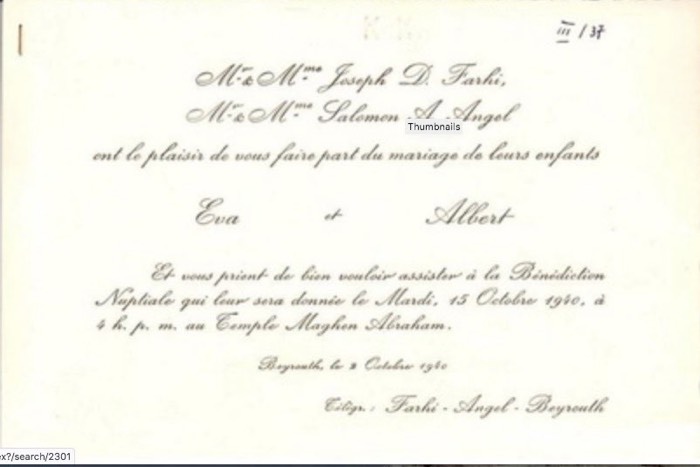 III / 37
Mr. & Mme Joseph D. Farhi,
Mr. & Mme Salomon A. Angel
Thumbnails
ont le plaisir de vous faire part du mariage de leurs enfants
Eva et Albert
Et vous prient de bien vouloir assister à la Bénédiction
Nuptiale qui leur sera donnée le Mardi, 15 Octobre 1940, à
4 h. p. m. au Temple Maghen Abraham.
Beyrouth, le 2 Octobre 1940
Télégr. : Farhi - Angel - Beyrouth
ex?/search/2301